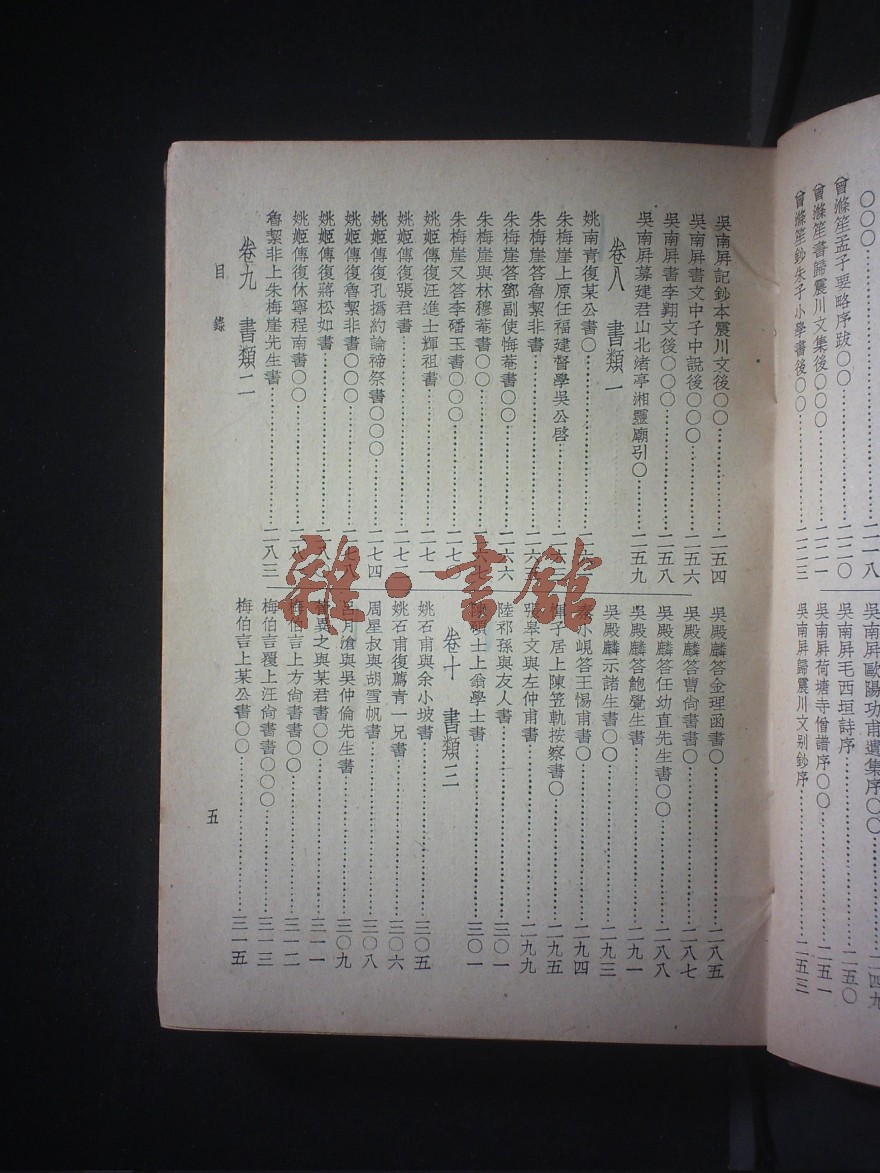 〇〇〇……二一八
曾滌笙孟子要略序跋〇〇……二二〇
曾滌笙書歸震川文集後〇〇〇……二二一
曾滌笙鈔朱子小學書後〇〇……二二三
吳南屏歐陽功甫遺集序〇〇……二四九
吳南屏毛西垣詩序……二五〇
吳南屏荷塘寺僧譜序〇〇……二五一
吳南屏歸震川文别鈔序……二五三
吳南屏記鈔本震川文後〇〇……二五四
吳南屏書文中子中說後〇〇〇……二五六
吳南屏書李翔文後〇〇〇……二五八
吳南屏募建君山北渚亭湘靈廟引〇……二五九
卷八 書類一
姚南青復某公書〇……
朱梅崖上原任福建督學吳公啓……
朱梅崖答魯絜非書……
朱梅崖答鄧副使悔菴書〇〇……二六六
朱梅崖與林穆菴書〇〇……二六七
朱梅崖又答李磻玉書〇〇〇……二七〇
姚姬傳復汪進士輝祖書……二七一
姚姬傳復張君書……二七二
姚姬傳復孔撝約論禘祭書〇〇〇……二七四
姚姬傳復魯絜非書〇〇〇……二七八
姚姬傳復蔣松如書……
姚姬傳復休寧程南書〇〇……
魯絜非上朱梅崖先生書……二八三
卷九 書類二
吳殿麟答金理函書〇……二八五
吳殿麟答曹尙書書〇……二八七
吳殿麟答任幼直先生書〇〇……二八八
吳殿麟答鮑覺生書……二九一
吳殿麟示諸生書〇〇……二九三
秦小峴答王惕甫書〇……二九四
惲子居上陳笠軌按察書〇……二九五
張皋文與左仲甫書……二九九
陸祁孫與友人書……三〇一
陳碩士上翁學士書……三〇一
卷十 書類三
姚石甫與余小坡書……三〇五
姚石甫復薦青一兄書……三〇六
周星叔與胡雪帆書……三〇八
呂月滄與吳仲倫先生書……三〇九
管異之與某君書〇〇……三一一
梅伯言上方尙書書〇〇……三一二
梅伯言覆上汪尙書書〇〇〇……三一三
梅伯言上某公書〇〇……三一五
目錄
五
雜·書館